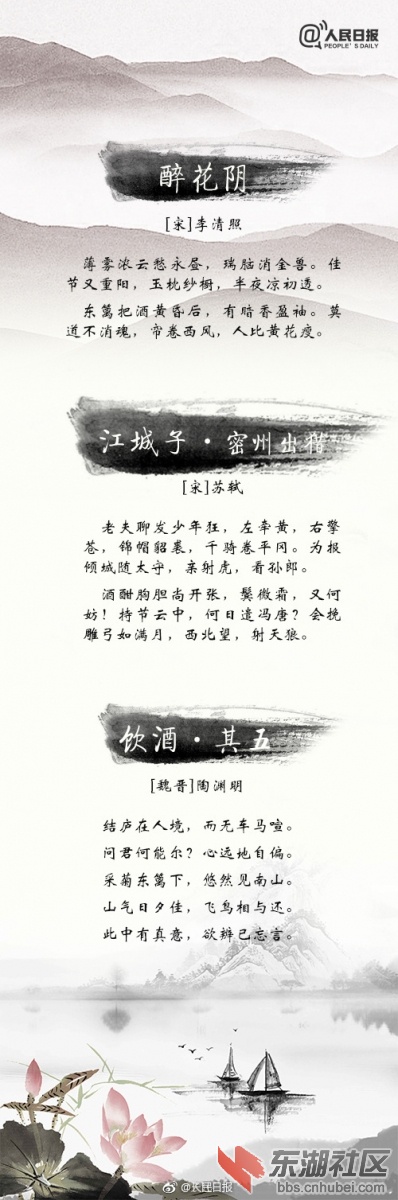 @人民日报
PEOPLE'S DAILY
醉花阴
[宋]李清照
薄雾浓云愁永昼，瑞脑消金兽。佳
节又重阳，玉枕纱橱，半夜凉初透。
东篱把酒黄昏后，有暗香盈袖。莫
道不消魂，帘卷西风，人比黄花瘦。
江城子·密州出猎
[宋]苏轼
老夫聊发少年狂，左牵黄，右擎
苍，锦帽貂裘，千骑卷平冈。为报
倾城随太守，亲射虎，看孙郎。
酒酣胸胆尚开张，鬓微霜，又何
妨！持节云中，何日遣冯唐？会挽
雕弓如满月，西北望，射天狼。
饮酒·其五
[魏晋]陶渊明
结庐在人境，而无车马喧。
问君何能尔？心远地自偏。
采菊东篱下，悠然见南山。
山气日夕佳，飞鸟相与还。
此中有真意，欲辨已忘言。
@长江日报
东湖社区
bbs.cnhubei.com